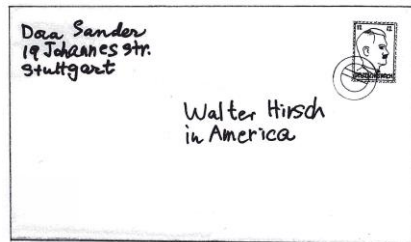 Dora Sander
19 Johannesstr.
Stuttgart
Walter Hirsch
in America